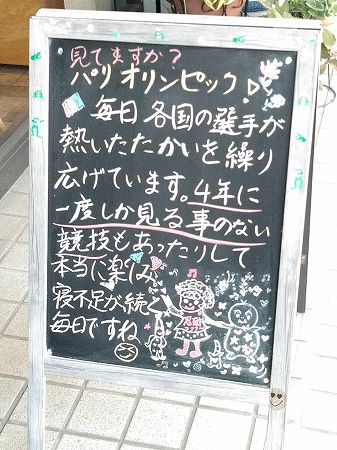 見てますか？
パリオリンピック♪
毎日各国の選手が
熱いたたかいを繰り
広げています。4年に
一度しか見る事のない
競技もあったりして
本当に楽しみ
寝不足が続く
毎日ですね